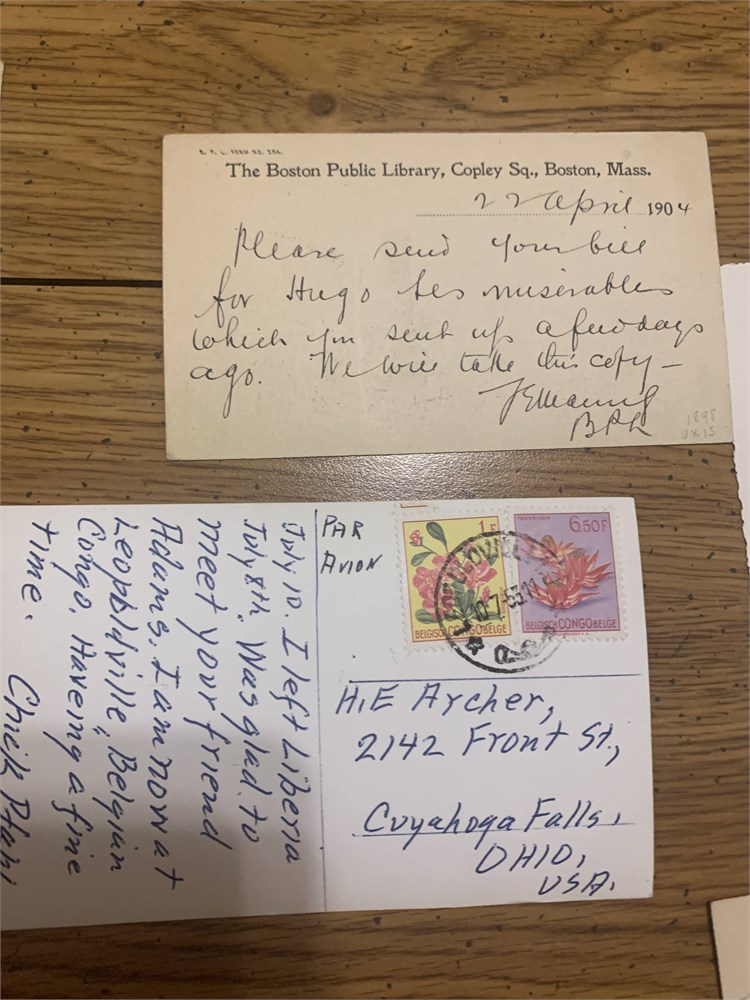 B. P. L. FORM NO. 254.
The Boston Public Library, Copley Sq., Boston, Mass.
22 April 1904
Please send your bill
for Hugo Les misérables
which you sent up a few days
ago. We will take this copy —
BPL
1898
UX15
July 10. I left Liberia
July 8th. Was glad to
meet your friend
Adams. I am now at
Leopoldville, Belgian
Congo. Haveing a fine
time.
PAR
AVION
1F
BELGISCH CONGO BELGE
6.50F
BELGISCH CONGO BELGE
H.E Archer,
2142 Front St.,
Cuyahoga Falls,
OHIO,
USA.